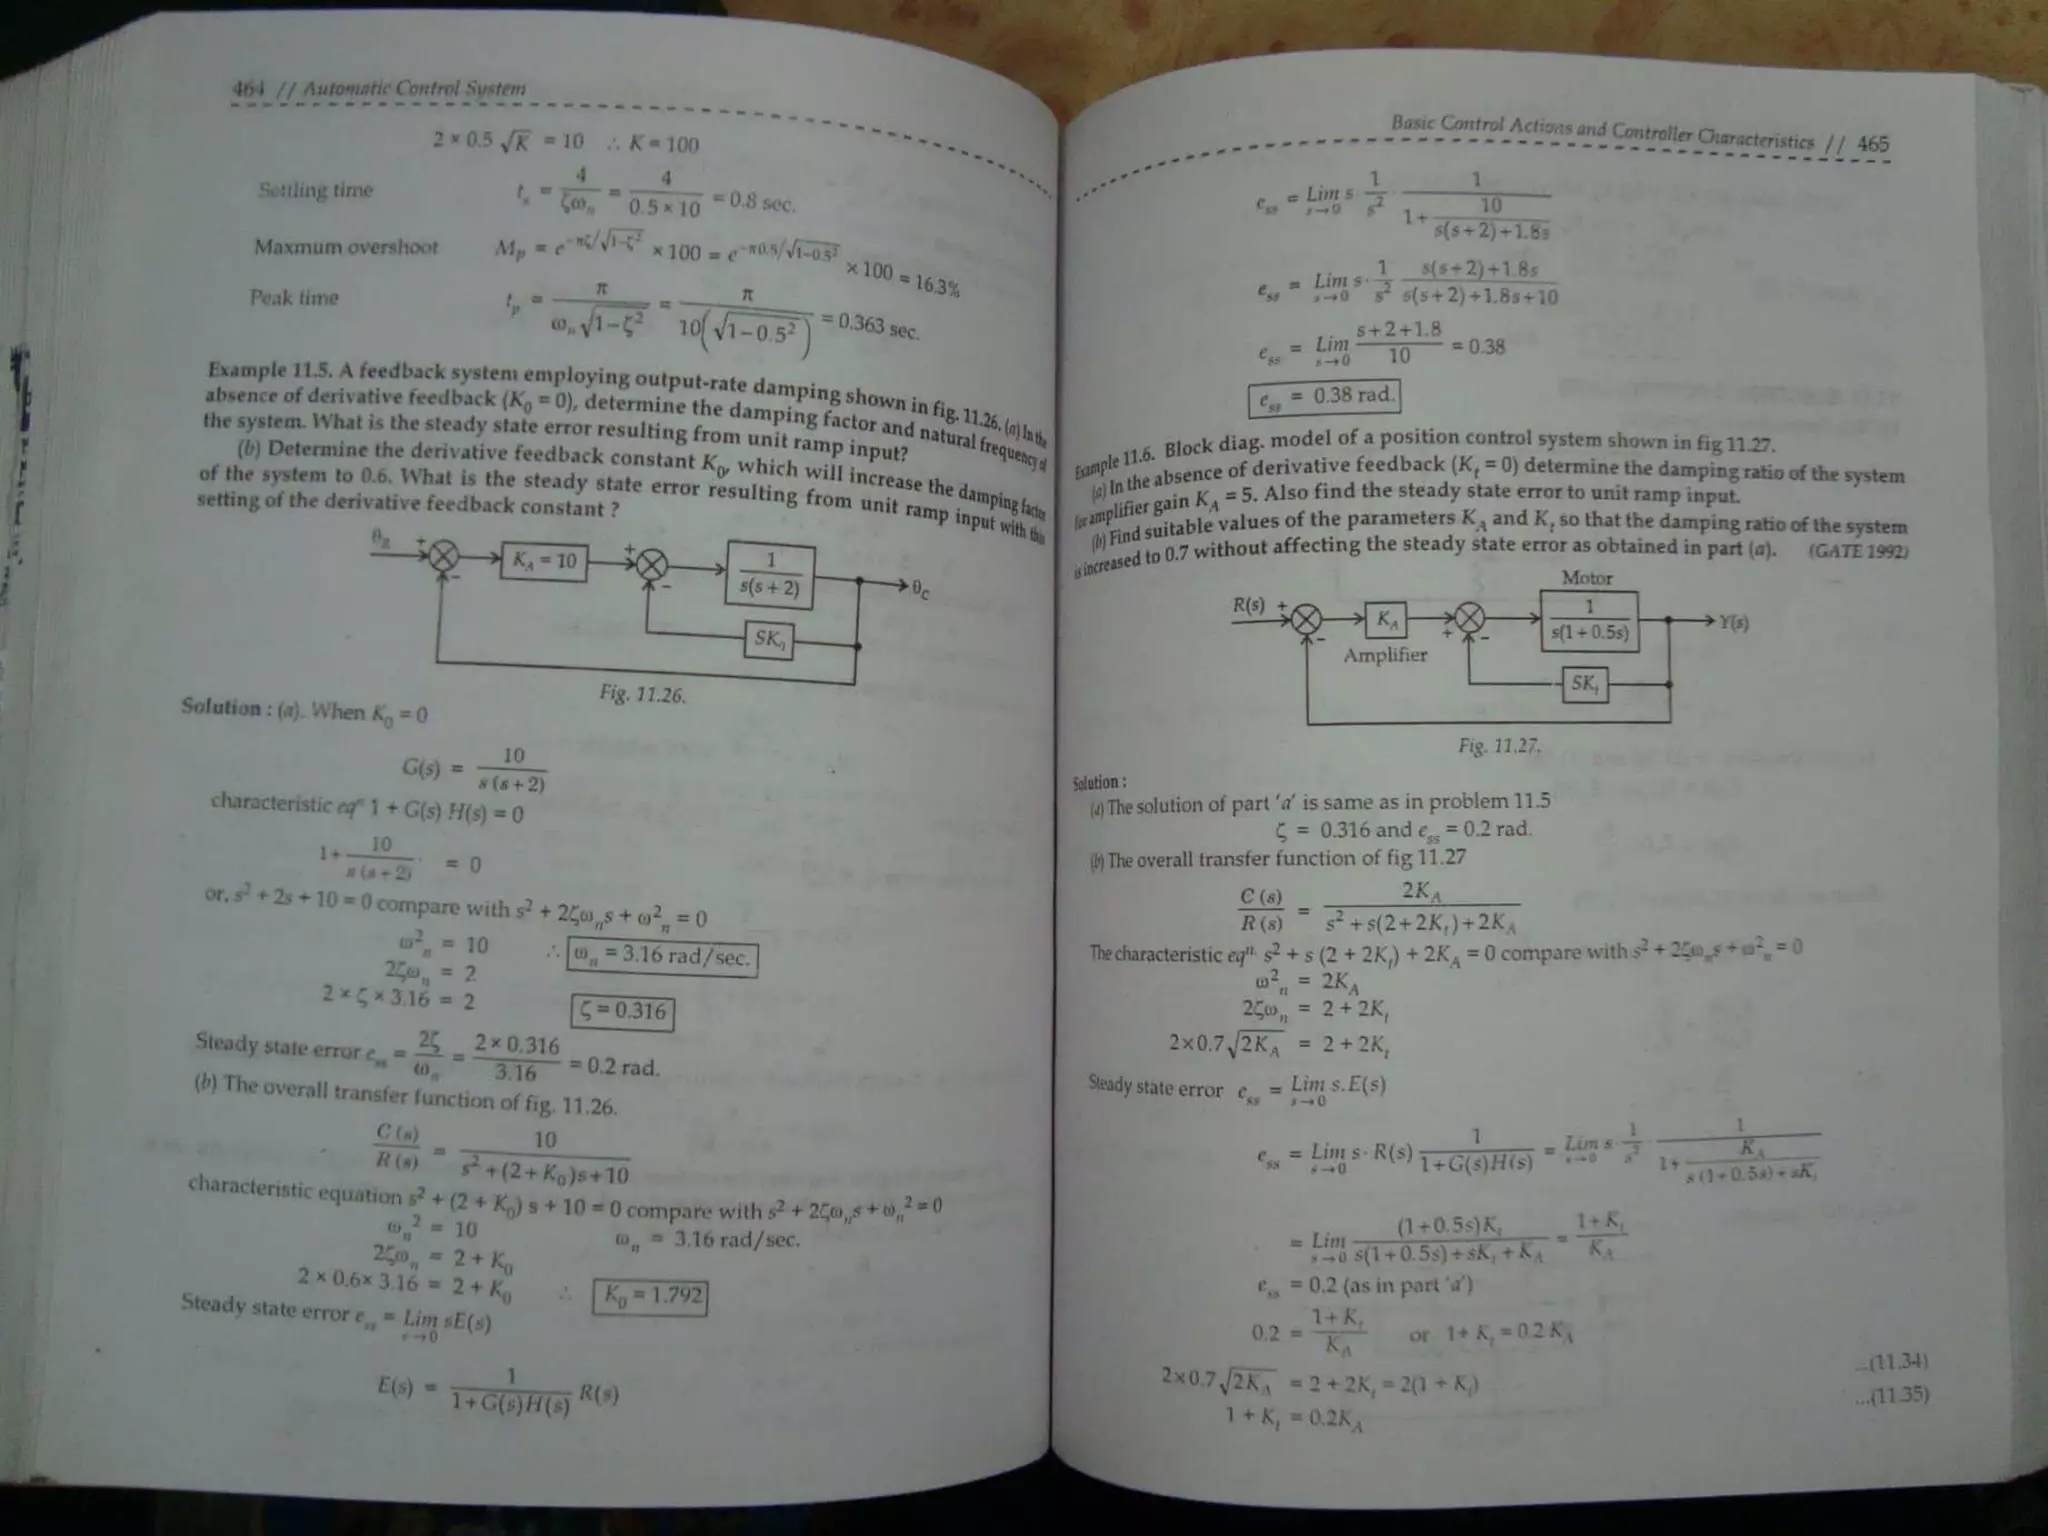 464 // Automatic Control System
2 × 0.5 √K = 10 ∴ K = 100
Settling time t_s = 4/ζω_n = 4/(0.5 × 10) = 0.8 sec.
Maxmum overshoot M_p = e^(−πζ/√(1−ζ²)) × 100 = e^(−π0.5/√(1−0.5²)) × 100 = 16.3%
Peak time t_p = π/(ω_n√(1−ζ²)) = π/(10(√(1−0.5²))) = 0.363 sec.
Example 11.5. A feedback system employing output-rate damping shown in fig. 11.26. (a) In the
absence of derivative feedback (K₀ = 0), determine the damping factor and natural frequency of
the system. What is the steady state error resulting from unit ramp input?
(b) Determine the derivative feedback constant K₀, which will increase the damping factor
of the system to 0.6. What is the steady state error resulting from unit ramp input with this
setting of the derivative feedback constant ?
θ_R + − K_A = 10 + − 1/(s(s + 2)) θ_C
SK₀
Fig. 11.26.
Solution : (a). When K₀ = 0
G(s) = 10/(s (s + 2))
characteristic eqⁿ 1 + G(s) H(s) = 0
1 + 10/(s (s + 2)) = 0
or, s² + 2s + 10 = 0 compare with s² + 2ζω_n s + ω²_n = 0
ω²_n = 10 ∴ ω_n = 3.16 rad/sec.
2ζω_n = 2
2 × ζ × 3.16 = 2 ζ = 0.316
Steady state error e_ss = 2ζ/ω_n = (2 × 0.316)/3.16 = 0.2 rad.
(b) The overall transfer function of fig. 11.26.
C (s)/R (s) = 10/(s² + (2 + K₀)s + 10)
characteristic equation s² + (2 + K₀) s + 10 = 0 compare with s² + 2ζω_n s + ω_n² = 0
ω_n² = 10 ω_n = 3.16 rad/sec.
2ζω_n = 2 + K₀
2 × 0.6× 3.16 = 2 + K₀ ∴ K₀ = 1.792
Steady state error e_ss = Lim s→0 sE(s)
E(s) = 1/(1 + G(s)H(s)) R(s)
Basic Control Actions and Controller Characteristics // 465
e_ss = Lim s→0 s · 1/s² · 1/(1 + 10/(s(s + 2) + 1.8s))
e_ss = Lim s→0 s · 1/s² (s(s + 2) + 1.8s)/(s(s + 2) + 1.8s + 10)
e_ss = Lim s→0 (s + 2 + 1.8)/10 = 0.38
e_ss = 0.38 rad.
Example 11.6. Block diag. model of a position control system shown in fig 11.27.
(a) In the absence of derivative feedback (K_t = 0) determine the damping ratio of the system
for amplifier gain K_A = 5. Also find the steady state error to unit ramp input.
(b) Find suitable values of the parameters K_A and K_t so that the damping ratio of the system
is increased to 0.7 without affecting the steady state error as obtained in part (a). (GATE 1992)
Motor
R(s) + − K_A + − 1/(s(1 + 0.5s)) Y(s)
Amplifier
SK_t
Fig. 11.27.
Solution :
(a) The solution of part 'a' is same as in problem 11.5
ζ = 0.316 and e_ss = 0.2 rad.
(b) The overall transfer function of fig 11.27
C (s)/R (s) = 2K_A/(s² + s(2 + 2K_t) + 2K_A)
The characteristic eqⁿ. s² + s (2 + 2K_t) + 2K_A = 0 compare with s² + 2ζω_n s + ω²_n = 0
ω²_n = 2K_A
2ζω_n = 2 + 2K_t
2×0.7√(2K_A) = 2 + 2K_t
Steady state error e_ss = Lim s→0 s.E(s)
e_ss = Lim s→0 s · R(s) 1/(1 + G(s)H(s)) = Lim s→0 s · 1/s² · 1/(1 + K_A/(s (1 + 0.5s) + sK_t))
= Lim s→0 (1 + 0.5s)K_t/(s(1 + 0.5s) + sK_t + K_A) = (1 + K_t)/K_A
e_ss = 0.2 (as in part 'a')
0.2 = (1 + K_t)/K_A or 1 + K_t = 0.2 K_A
2×0.7√(2K_A) = 2 + 2K_t = 2(1 + K_t) ...(11.34)
1 + K_t = 0.2K_A ...(11.35)